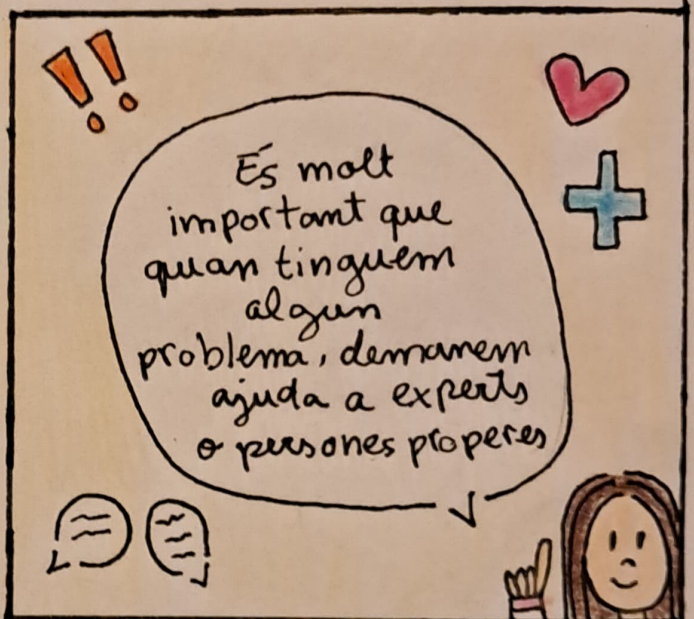 És molt
important que
quan tinguem
algun
problema, demanem
ajuda a experts
o persones properes